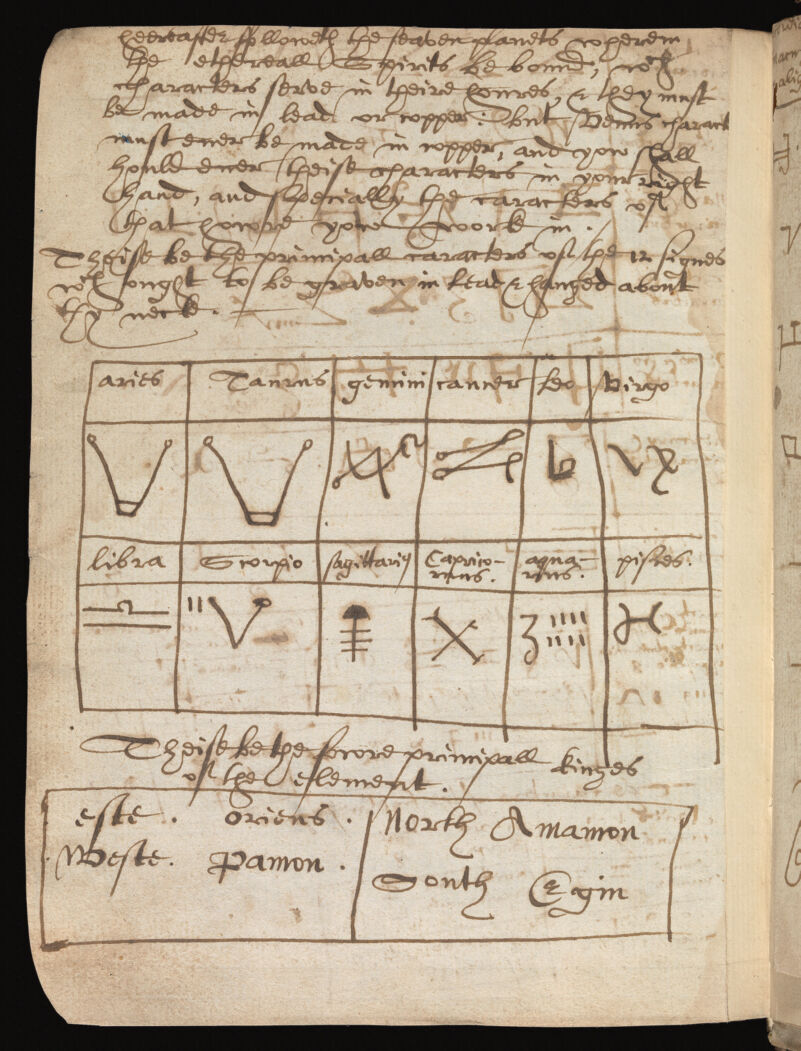 hereafter followeth the seaven planets wherein
the ethereall Spirits be bound, wch
characters serve in theire howres, & they must
be made in lead or copper: but Venus charact
must ever be made in copper, and yow shall
hould ever theise characters in your right
hand, and specially the caracters of
that howre yow work in.
Theise be the principall caracters of the 12 signes
wch ought to be graven in lead & hanged about
thy neck.
aries Taurus gemini cancer leo virgo
libra Scorpio sagittari9 Caprico-
rnus. aqua-
rius. pisces.
Theise be the fowre principall kinges
of the element.
este. Oriens. North Amamon
Weste. Pamon. South Egin